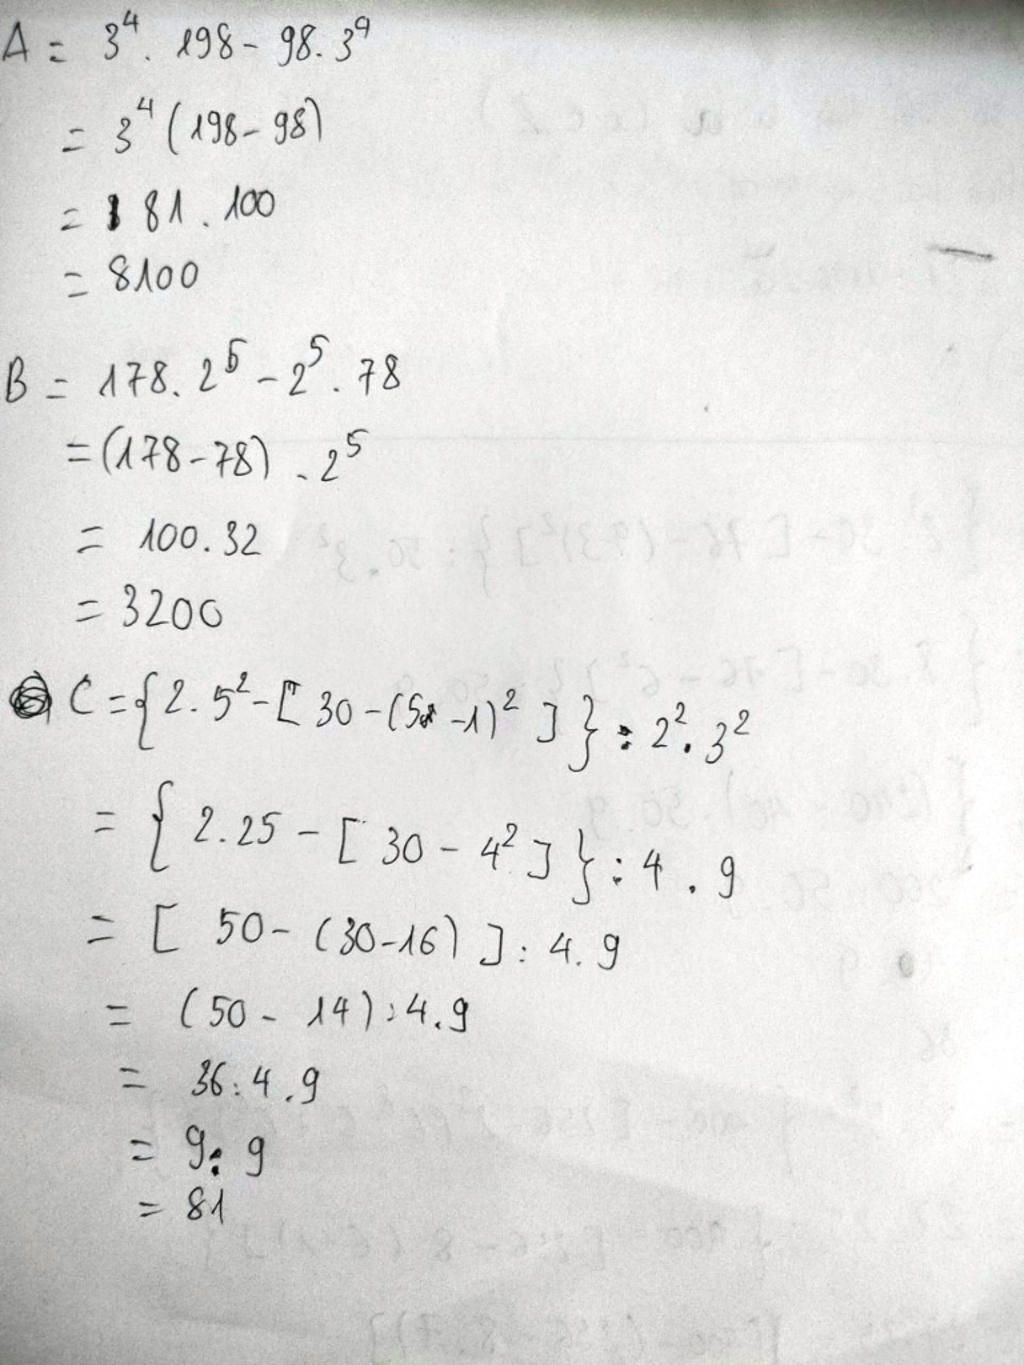 A = 3⁴ . 198 - 98 . 3⁴
= 3⁴ (198 - 98)
= 81 . 100
= 8100
B = 178 . 2⁵ - 2⁵ . 78
= (178 - 78) . 2⁵
= 100 . 32
= 3200
C = { 2 . 5² - [ 30 - (5 - 1)² ] } : 2² . 3²
= { 2 . 25 - [ 30 - 4² ] } : 4 . 9
= [ 50 - (30 - 16) ] : 4 . 9
= (50 - 14) : 4 . 9
= 36 : 4 . 9
= 9 . 9
= 81